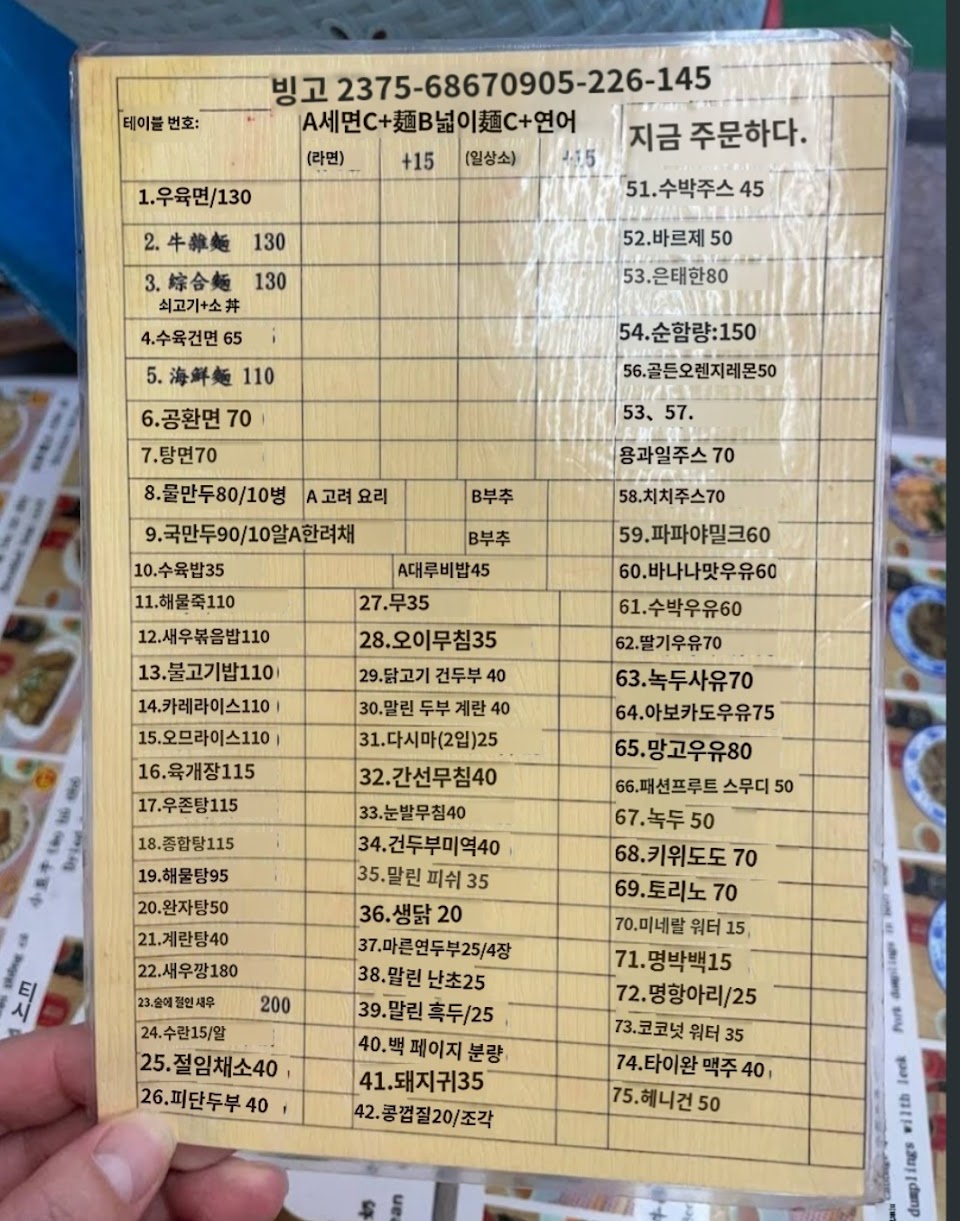 빙고 2375-68670905-226-145
테이블 번호:
A세면C+麵B넓이麵C+연어
지금 주문하다.
(라면) +15 (일상소) +15
1.우육면/130
2. 牛雜麵 130
3. 綜合麵 130
쇠고기+소 丼
4.수육건면 65
5. 海鮮麵 110
6.공환면 70
7.탕면70
8.물만두80/10병 A 고려 요리 B부추
9.국만두90/10알A한려채 B부추
10.수육밥35 A대루비밥45
11.해물죽110
12.새우볶음밥110
13.불고기밥110
14.카레라이스110
15.오므라이스110
16.육개장115
17.우존탕115
18.종합탕115
19.해물탕95
20.완자탕50
21.계란탕40
22.새우깡180
23.술에 절인 새우 200
24.수란15/알
25.절임채소40
26.피단두부 40
27.무35
28.오이무침35
29.닭고기 건두부 40
30.말린 두부 계란 40
31.다시마(2입)25
32.간선무침40
33.눈발무침40
34.건두부미역40
35.말린 피쉬 35
36.생닭 20
37.마른연두부25/4장
38.말린 난초25
39.말린 흑두/25
40.백 페이지 분량
41.돼지귀35
42.콩껍질20/조각
51.수박주스 45
52.바르제 50
53.은태한80
54.순함량:150
56.골든오렌지레몬50
53、57.
용과일주스 70
58.치치주스70
59.파파야밀크60
60.바나나맛우유60
61.수박우유60
62.딸기우유70
63.녹두사유70
64.아보카도우유75
65.망고우유80
66.패션프루트 스무디 50
67.녹두 50
68.키위도도 70
69.토리노 70
70.미네랄 워터 15
71.명박백15
72.명항아리/25
73.코코넛 워터 35
74.타이완 맥주 40
75.헤니건 50
티
시
Pork dumplings in
dumplings wilth leek